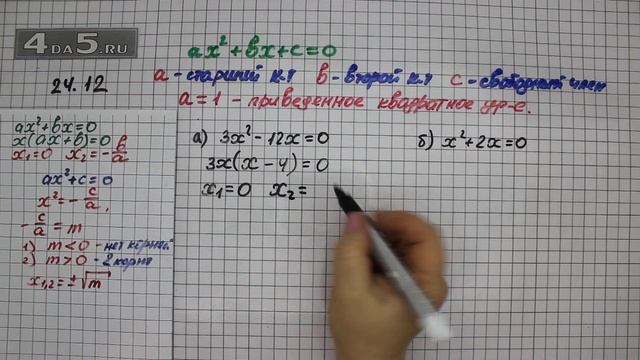 4DA5.RU
ax²+bx+c=0
24.12
a - старший к.т b - второй к.т c - свободный член
a=1 - приведенное квадратное ур-е.
ax²+bx=0
x(ax+b)=0
x₁=0 x₂=-b/a
ax²+c=0
x²=-c/a,
-c/a=m
1) m<0 - нет корней
2) m>0 - 2 корня
x₁,₂=±√m
а) 3x²-12x=0
3x(x-4)=0
x₁=0 x₂=
б) x²+2x=0